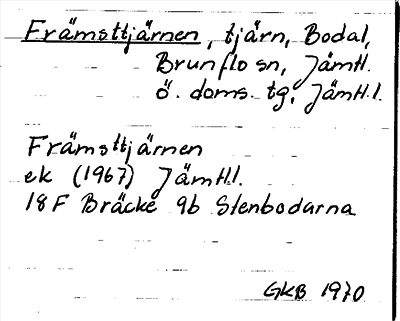 Främsttjärnen, tjärn, Bodal,
Brunflo sn, Jämtl.
ö. doms. tg, Jämtl.l.
Främsttjärnen
ek (1967) Jämtl.l.
18F Bräcke 9b Stenbodarna
GKB 1970